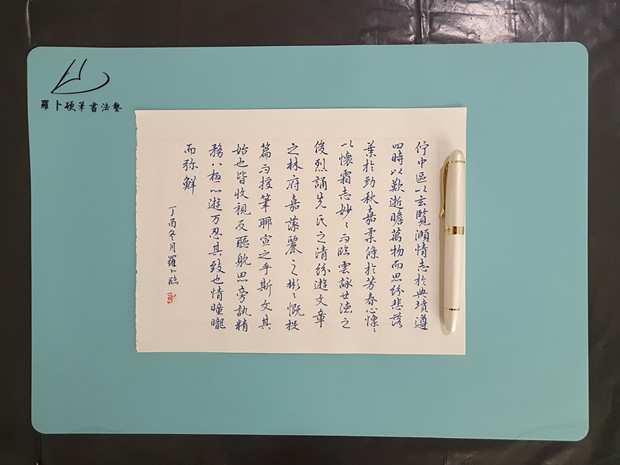 羅卜硬筆書法塾
佇中區以玄覽頤情志於典墳遵
四時以歎逝瞻萬物而思紛悲落
葉於勁秋嘉柔條於芳春心懍〻
以懷霜志妙〻而臨雲詠世德之
俊烈誦先氏之清紛遊文章
之林府嘉藻麗之彬〻慨投
篇而援筆聊宣之乎斯文其
始也皆收視反聽躭思旁訊精
務八極心遊万忍其致也情曈曨
而弥鮮
丁酉冬月羅卜臨